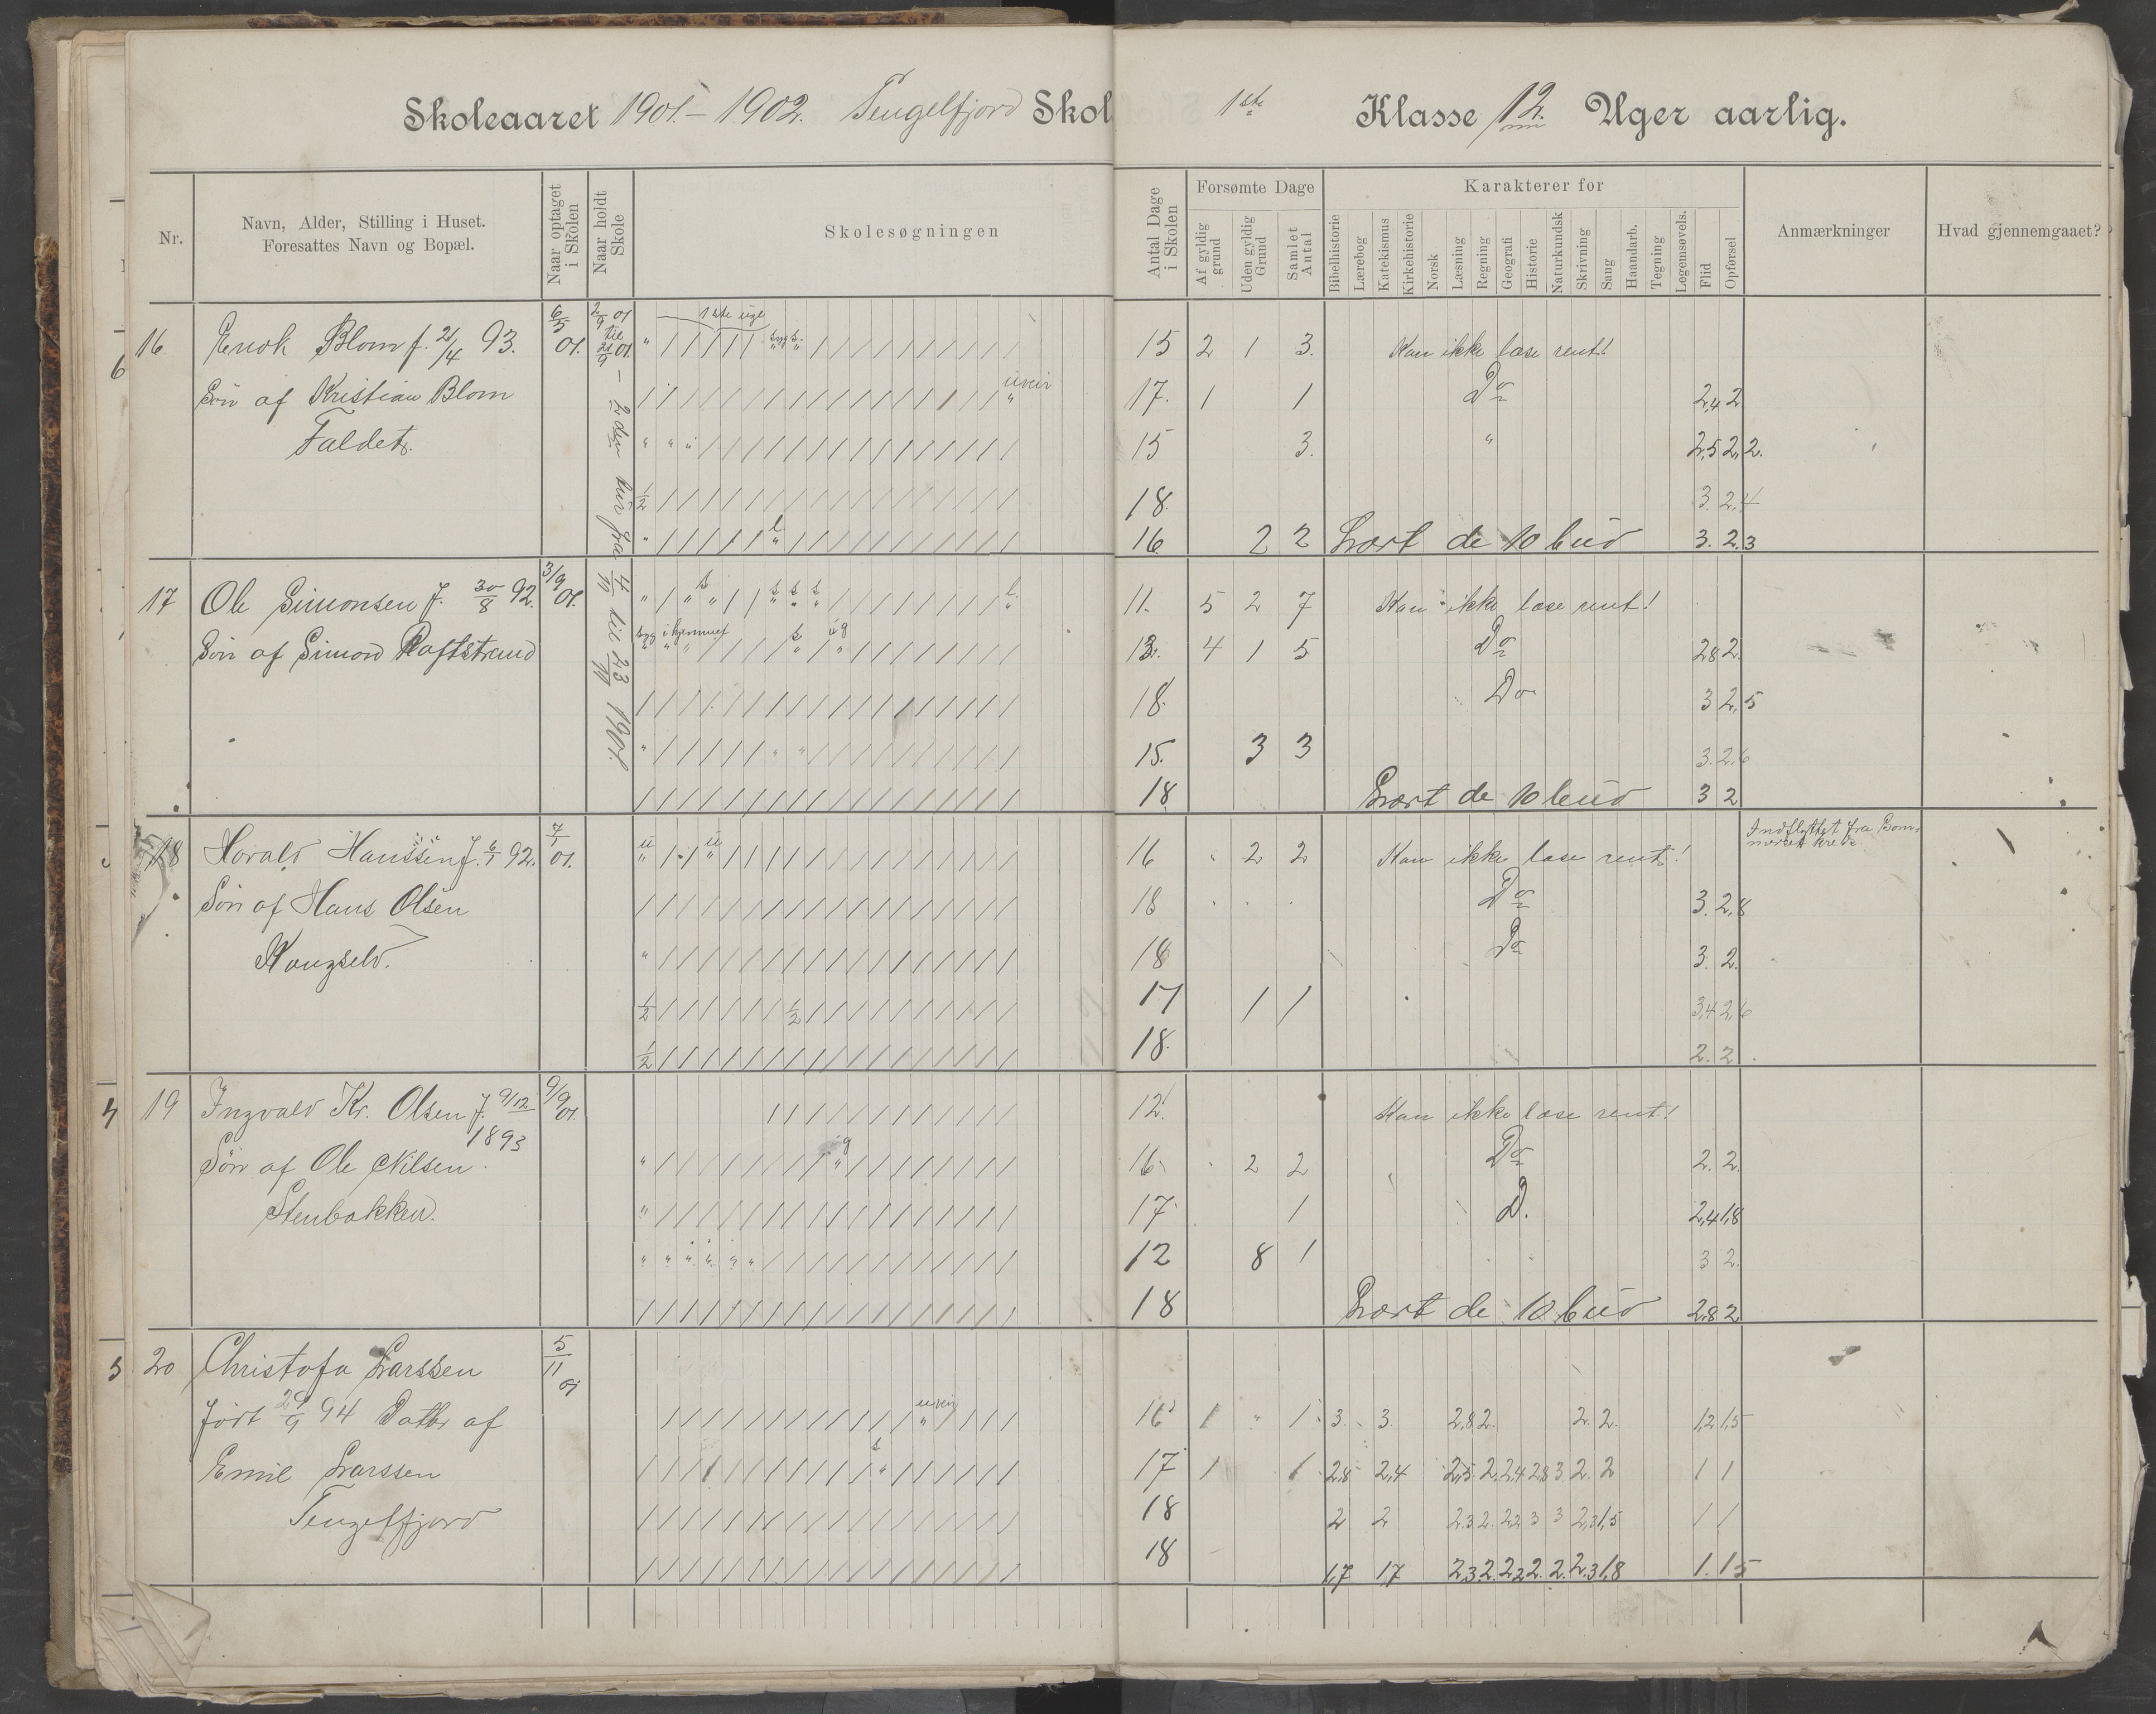 Skoleaaret 1901.-1902. Tengelfjord Skol 1ste Klasse 12. Uger aarlig.
Nr.
Navn, Alder, Stilling i Huset.
Foresattes Navn og Bopæl.
Naar optaget
i Skolen
Naar holdt
Skole
Skolesøgningen
Antal Dage
i Skolen
Forsømte Dage
Af gyldig
grund
Uden gyldig
Grund
Samlet
Antal
Karakterer for
Bibelhistorie
Lærebog
Katekismus
Kirkehistorie
Norsk
Læsning
Regning
Geografi
Historie
Naturkundsk
Skrivning
Sang
Haandarb.
Tegning
Legemsøvels.
Flid
Opførsel
Anmærkninger
Hvad gjennemgaaet?
2/9 01 til 21/9 01. – 2den tur fra 4/11 til 23/11 1901.
1ste uge
16 Enok Blom f. 21/4 93. 6/5 01. 15 2 1 3. Kan ikke læse rent!
Søn af Kristian Blom uveir 17. 1 1 Do 2,4 2
Faldet. 15 3. " 2,5 2,2.
1/2 18. 3. 2,4
16 2 2 Lært de 10 bud 3. 2,3
17 Ole Simonsen f. 30/8 92. 3/9 01. 11. 5 2 7 Kan ikke læse rent!
Søn af Simon Raftstrand syg i hjemmet 13. 4 1 5 Do 2,8 2.
18. Do 3 2,5
15. 3 3 3. 2,6
18 Lært de 10 bud 3 2
18 Harald Hanssen f. 6/1 92. 7/1 01. 16 2 2 Kan ikke læse rent! Indflyttet fra Bom
Søn af Hans Olsen 18 Do 3. 2,8
Kongselv. 18 Do 3. 2.
1/2 1/2 17 1 1 3,4 2,6
1/2 18. 2. 2
19 Ingvald Kr. Olsen f. 9/12 9/9 01. 12. Kan ikke læse rent!
1893
Søn af Ole Nilsen 16 2 2 Do 2. 2.
Stenbakken. 17 1 D. 2,4 1,8
12 8 1 3 2.
18 Lært de 10 bud 2,8 2
20 Christofa Larssen 5/11 01
født 29/9 94 Datter af uveir 16 1 " 1 3. 3. 2,8 2. 2. 2. 1,2 1,5
Emil Larssen 17 1 1 2,8 2,4 2,5 2, 2,4 2,8 3. 2. 2 1 1
Tengelfjord 18 2 2 2,3 2. 2,2 3 3 2,3 1,5 1 1
18 1,7 1,7 2,3 2. 2,2 2. 2. 2,3 1,8 1. 1,5